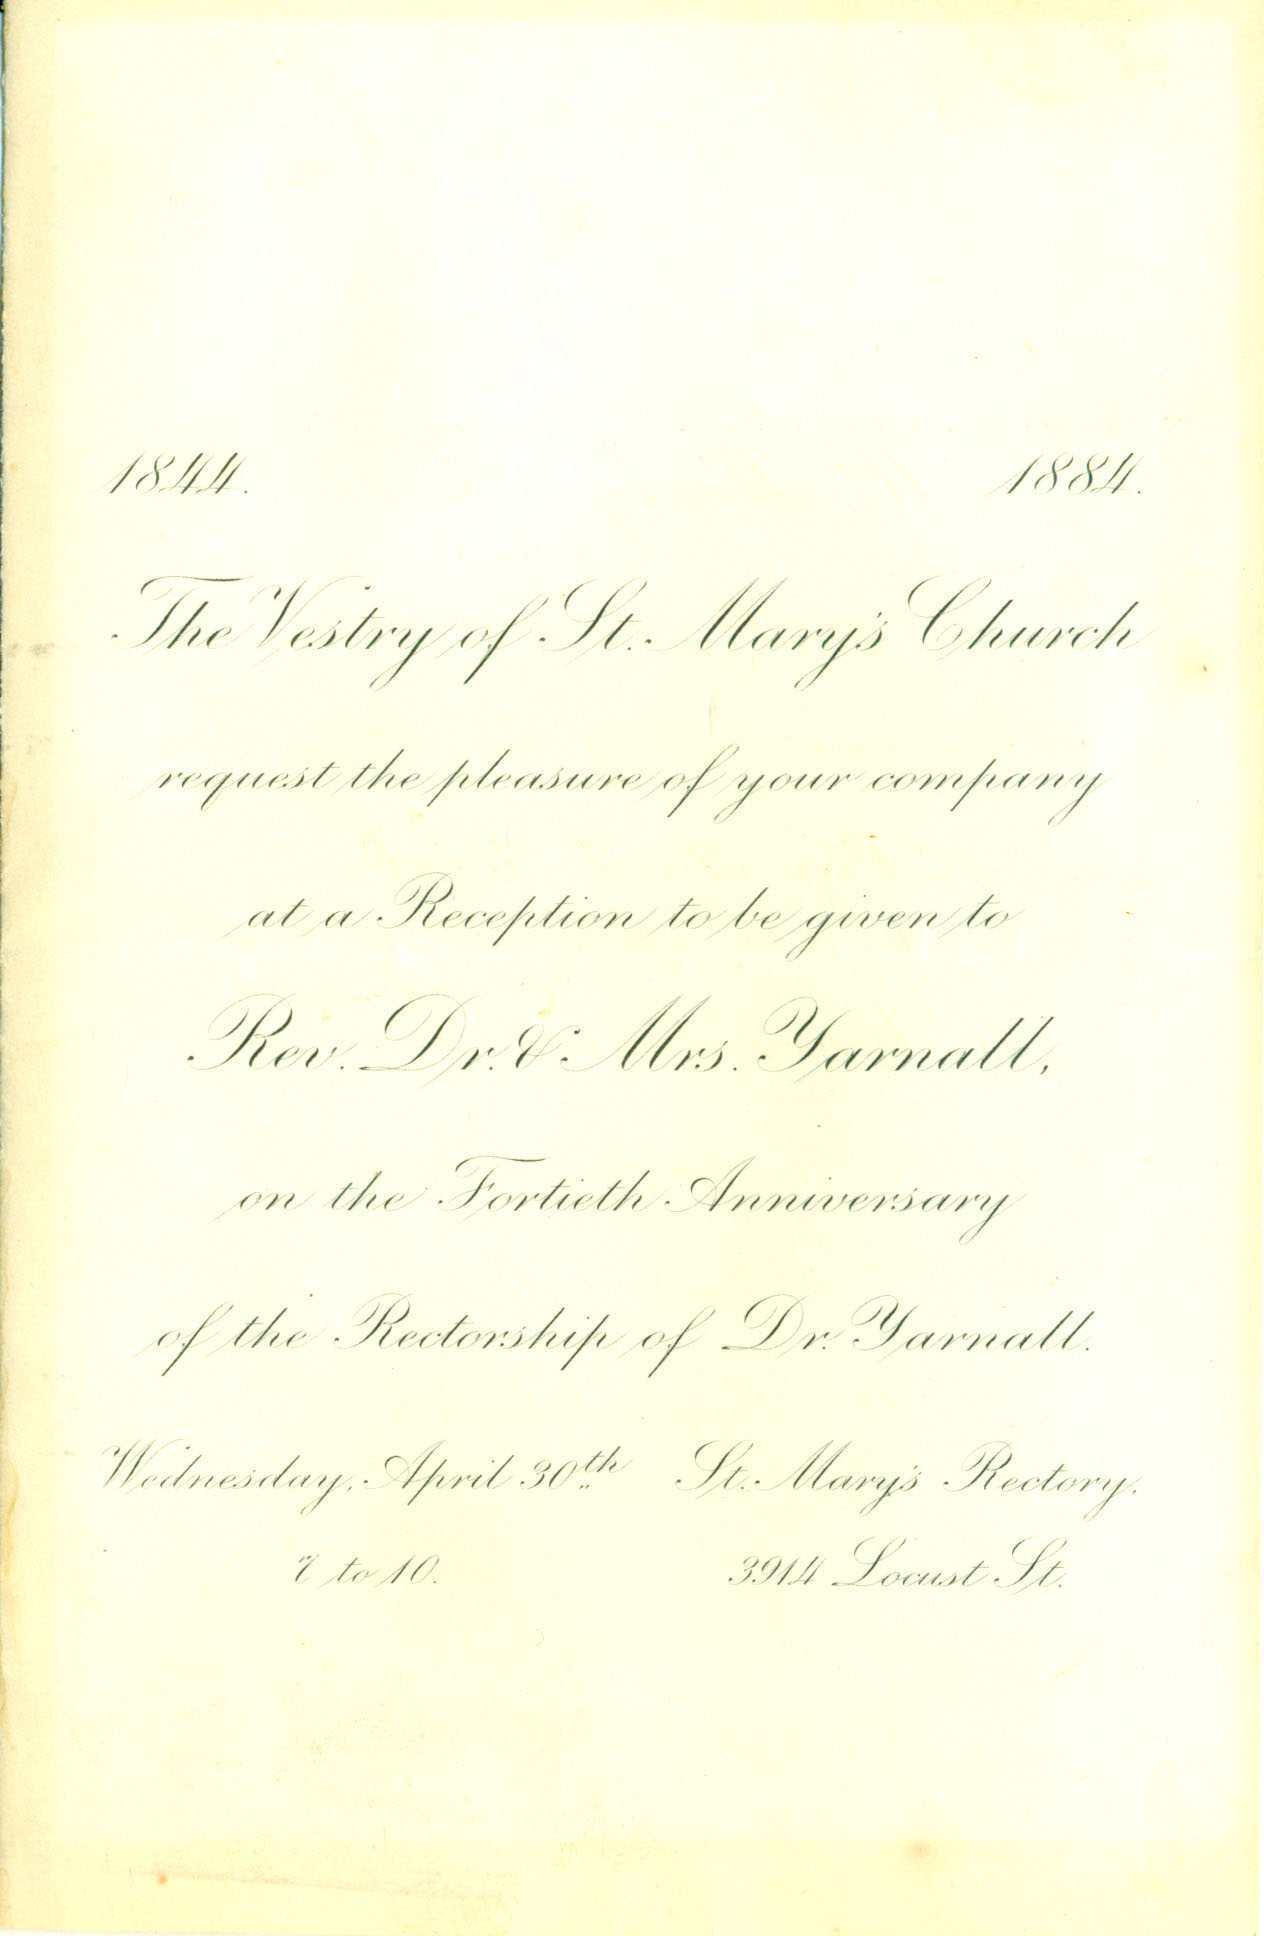 1844. 1884.
The Vestry of St. Mary's Church
request the pleasure of your company
at a Reception to be given to
Rev. Dr. & Mrs. Yarnall,
on the Fortieth Anniversary
of the Rectorship of Dr. Yarnall.
Wednesday, April 30th St. Mary's Rectory,
7 to 10. 3914 Locust St.